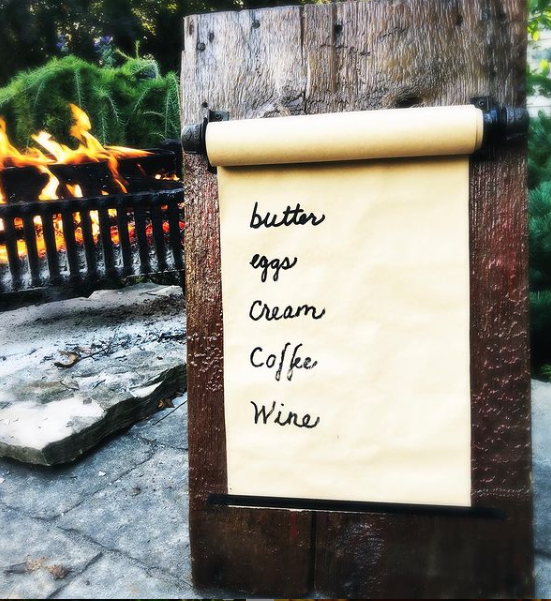 butter
eggs
Cream
Coffee
Wine